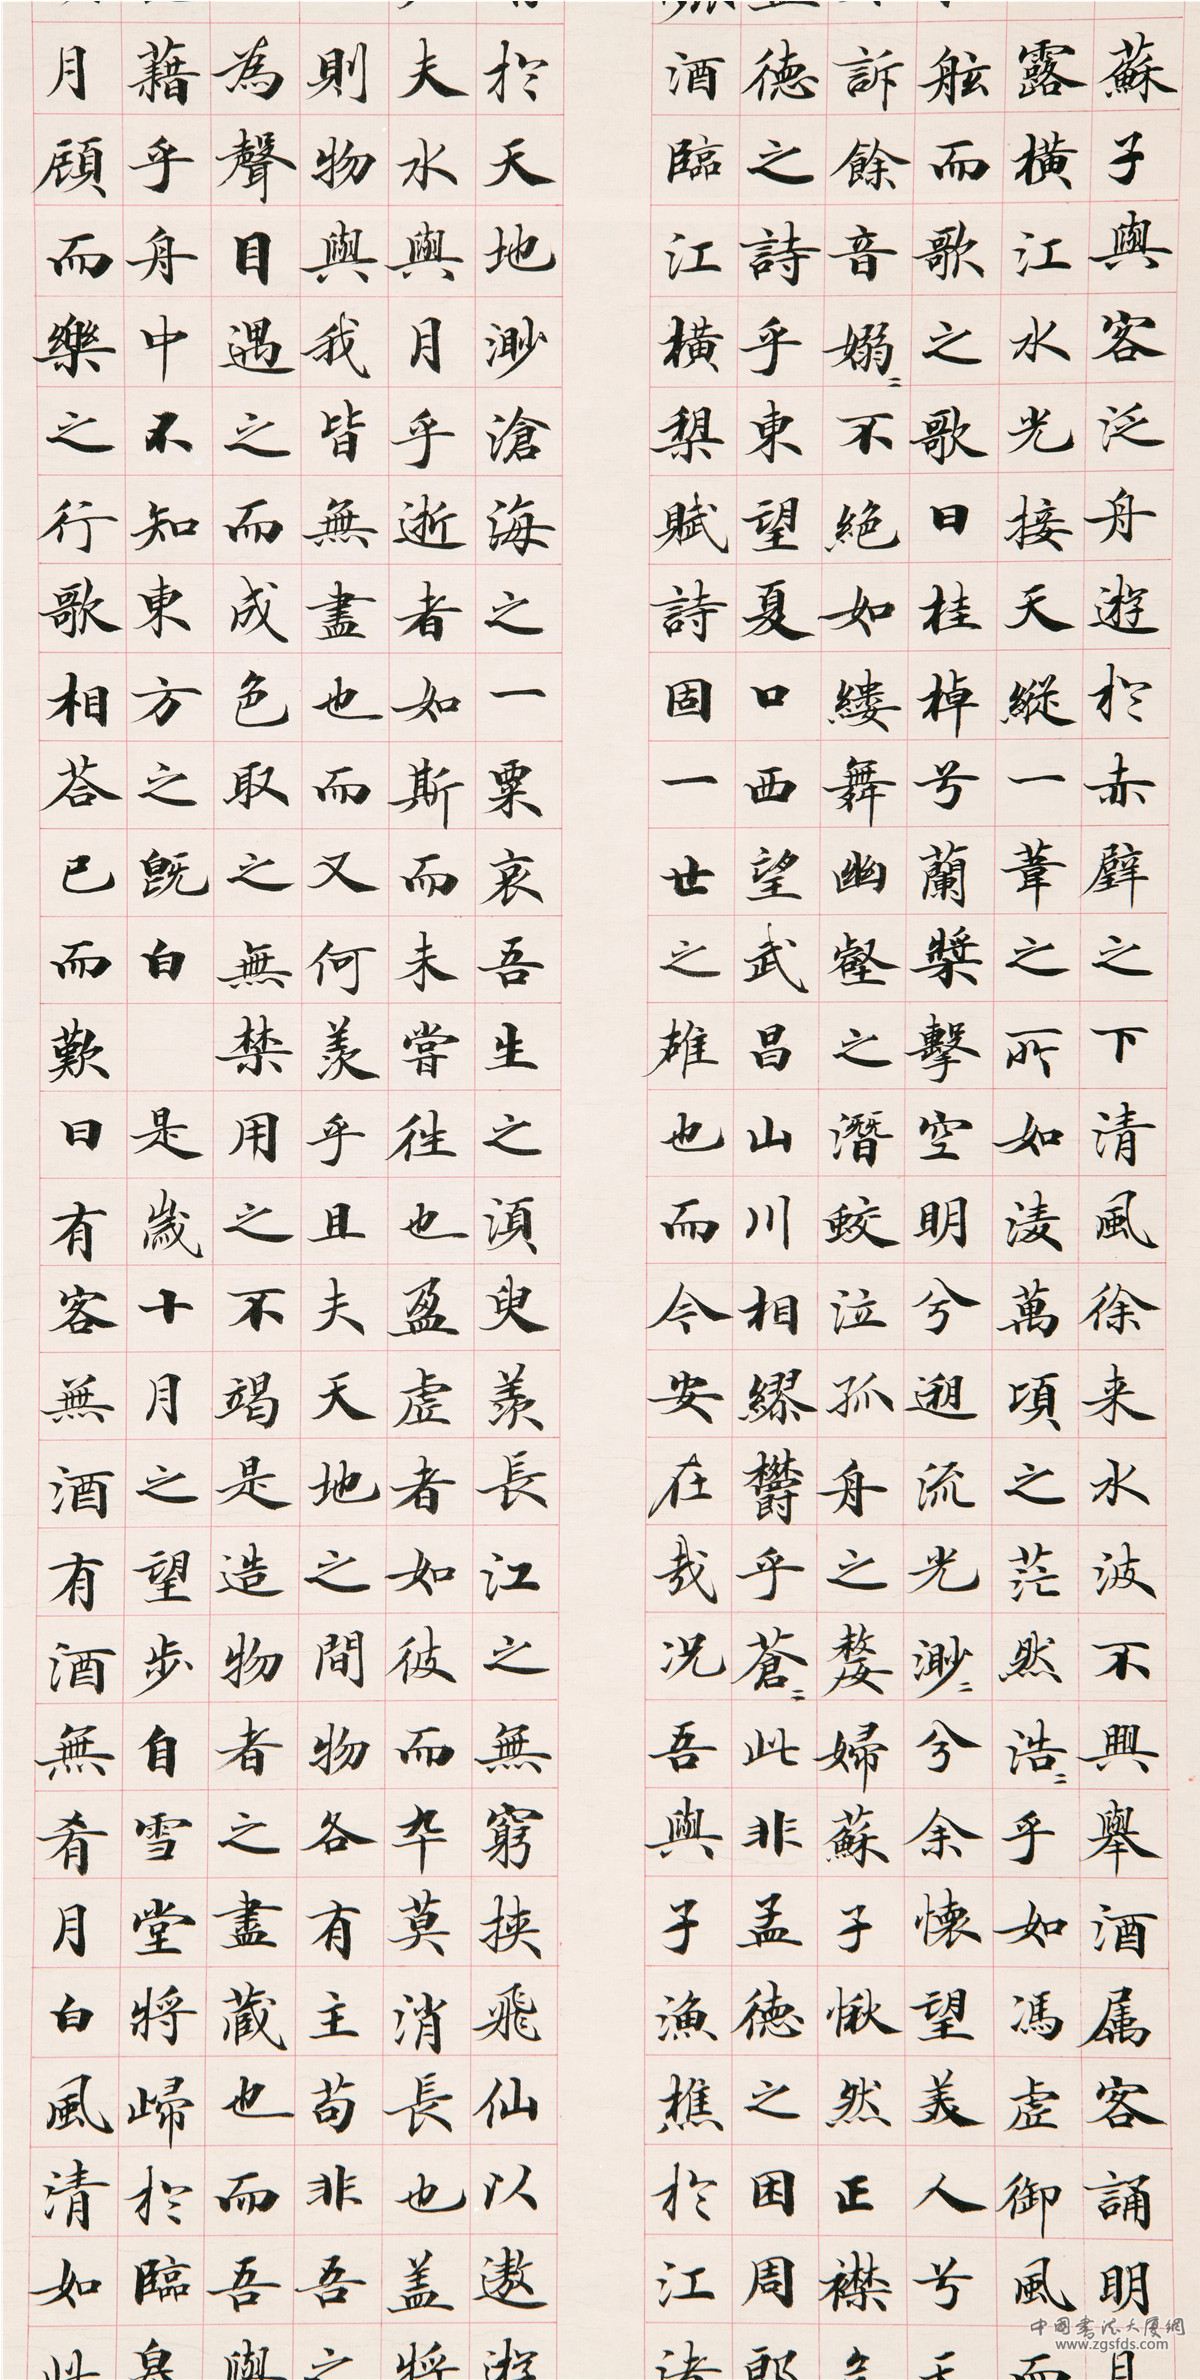 蘇子與客泛舟遊於赤壁之下清風徐来水波不興舉酒属客誦明月
露橫江水光接天縱一葦之所如凌萬頃之茫然浩〻乎如馮虛御風而
舷而歌之歌曰桂棹兮蘭槳擊空明兮遡流光渺〻兮余懷望美人兮天
訴餘音嫋〻不絕如縷舞幽壑之潛蛟泣孤舟之嫠婦蘇子愀然正襟危
德之詩乎東望夏口西望武昌山川相繆欝乎蒼〻此非孟德之困周郎
酒臨江橫槊賦詩固一世之雄也而今安在哉况吾與子漁樵於江渚
於天地渺滄海之一粟哀吾生之湏臾羨長江之無窮挾飛仙以遨遊
夫水與月乎逝者如斯而未嘗往也盈虛者如彼而卒莫消長也盖將
則物與我皆無盡也而又何羨乎且夫天地之間物各有主苟非吾之
為聲目遇之而成色取之無禁用之不竭是造物者之盡藏也而吾與
藉乎舟中不知東方之既白 是歲十月之望步自雪堂將歸於臨皋
月顧而樂之行歌相荅已而歎曰有客無酒有酒無肴月白風清如此
中国書法大厦網
www.zgsfds.com